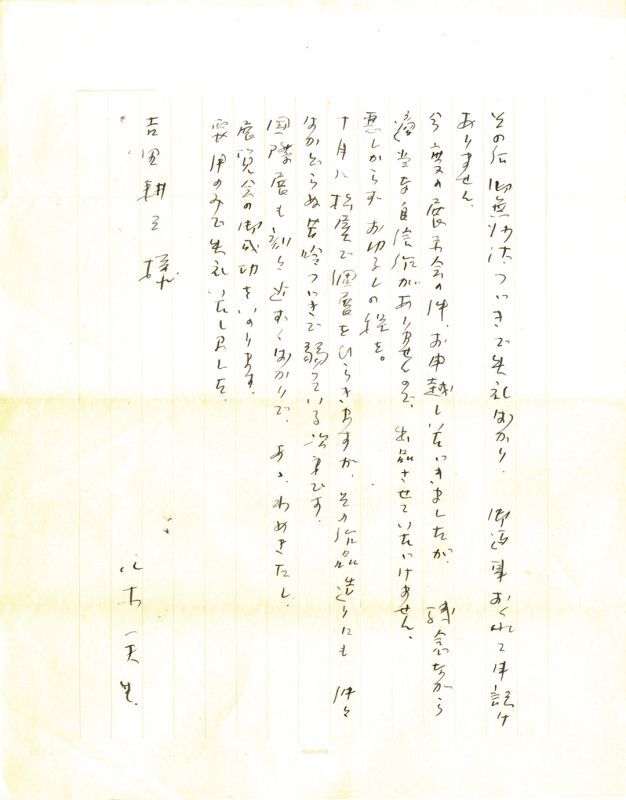 その后御無沙汰つゞきで失礼ばかり、御返事おくれて申訳け
ありません。
今度の展示会の件、お申越しいたゞきましたが、残念ながら
適当な自信作がありませんので、出品させていたゞけません。
悪しからず おゆるしの程を。
十月に 松廣で個展をひらきますが、その作品造りにも 仲々
はかどらぬ苦吟つゞきで弱っている次第です。
国際展も刻々近づくばかりで、あゝ、わめきたし。
展覧会の御成功をいのります。
要用のみで失礼いたしました。
吉田耕三 様
八木 一夫